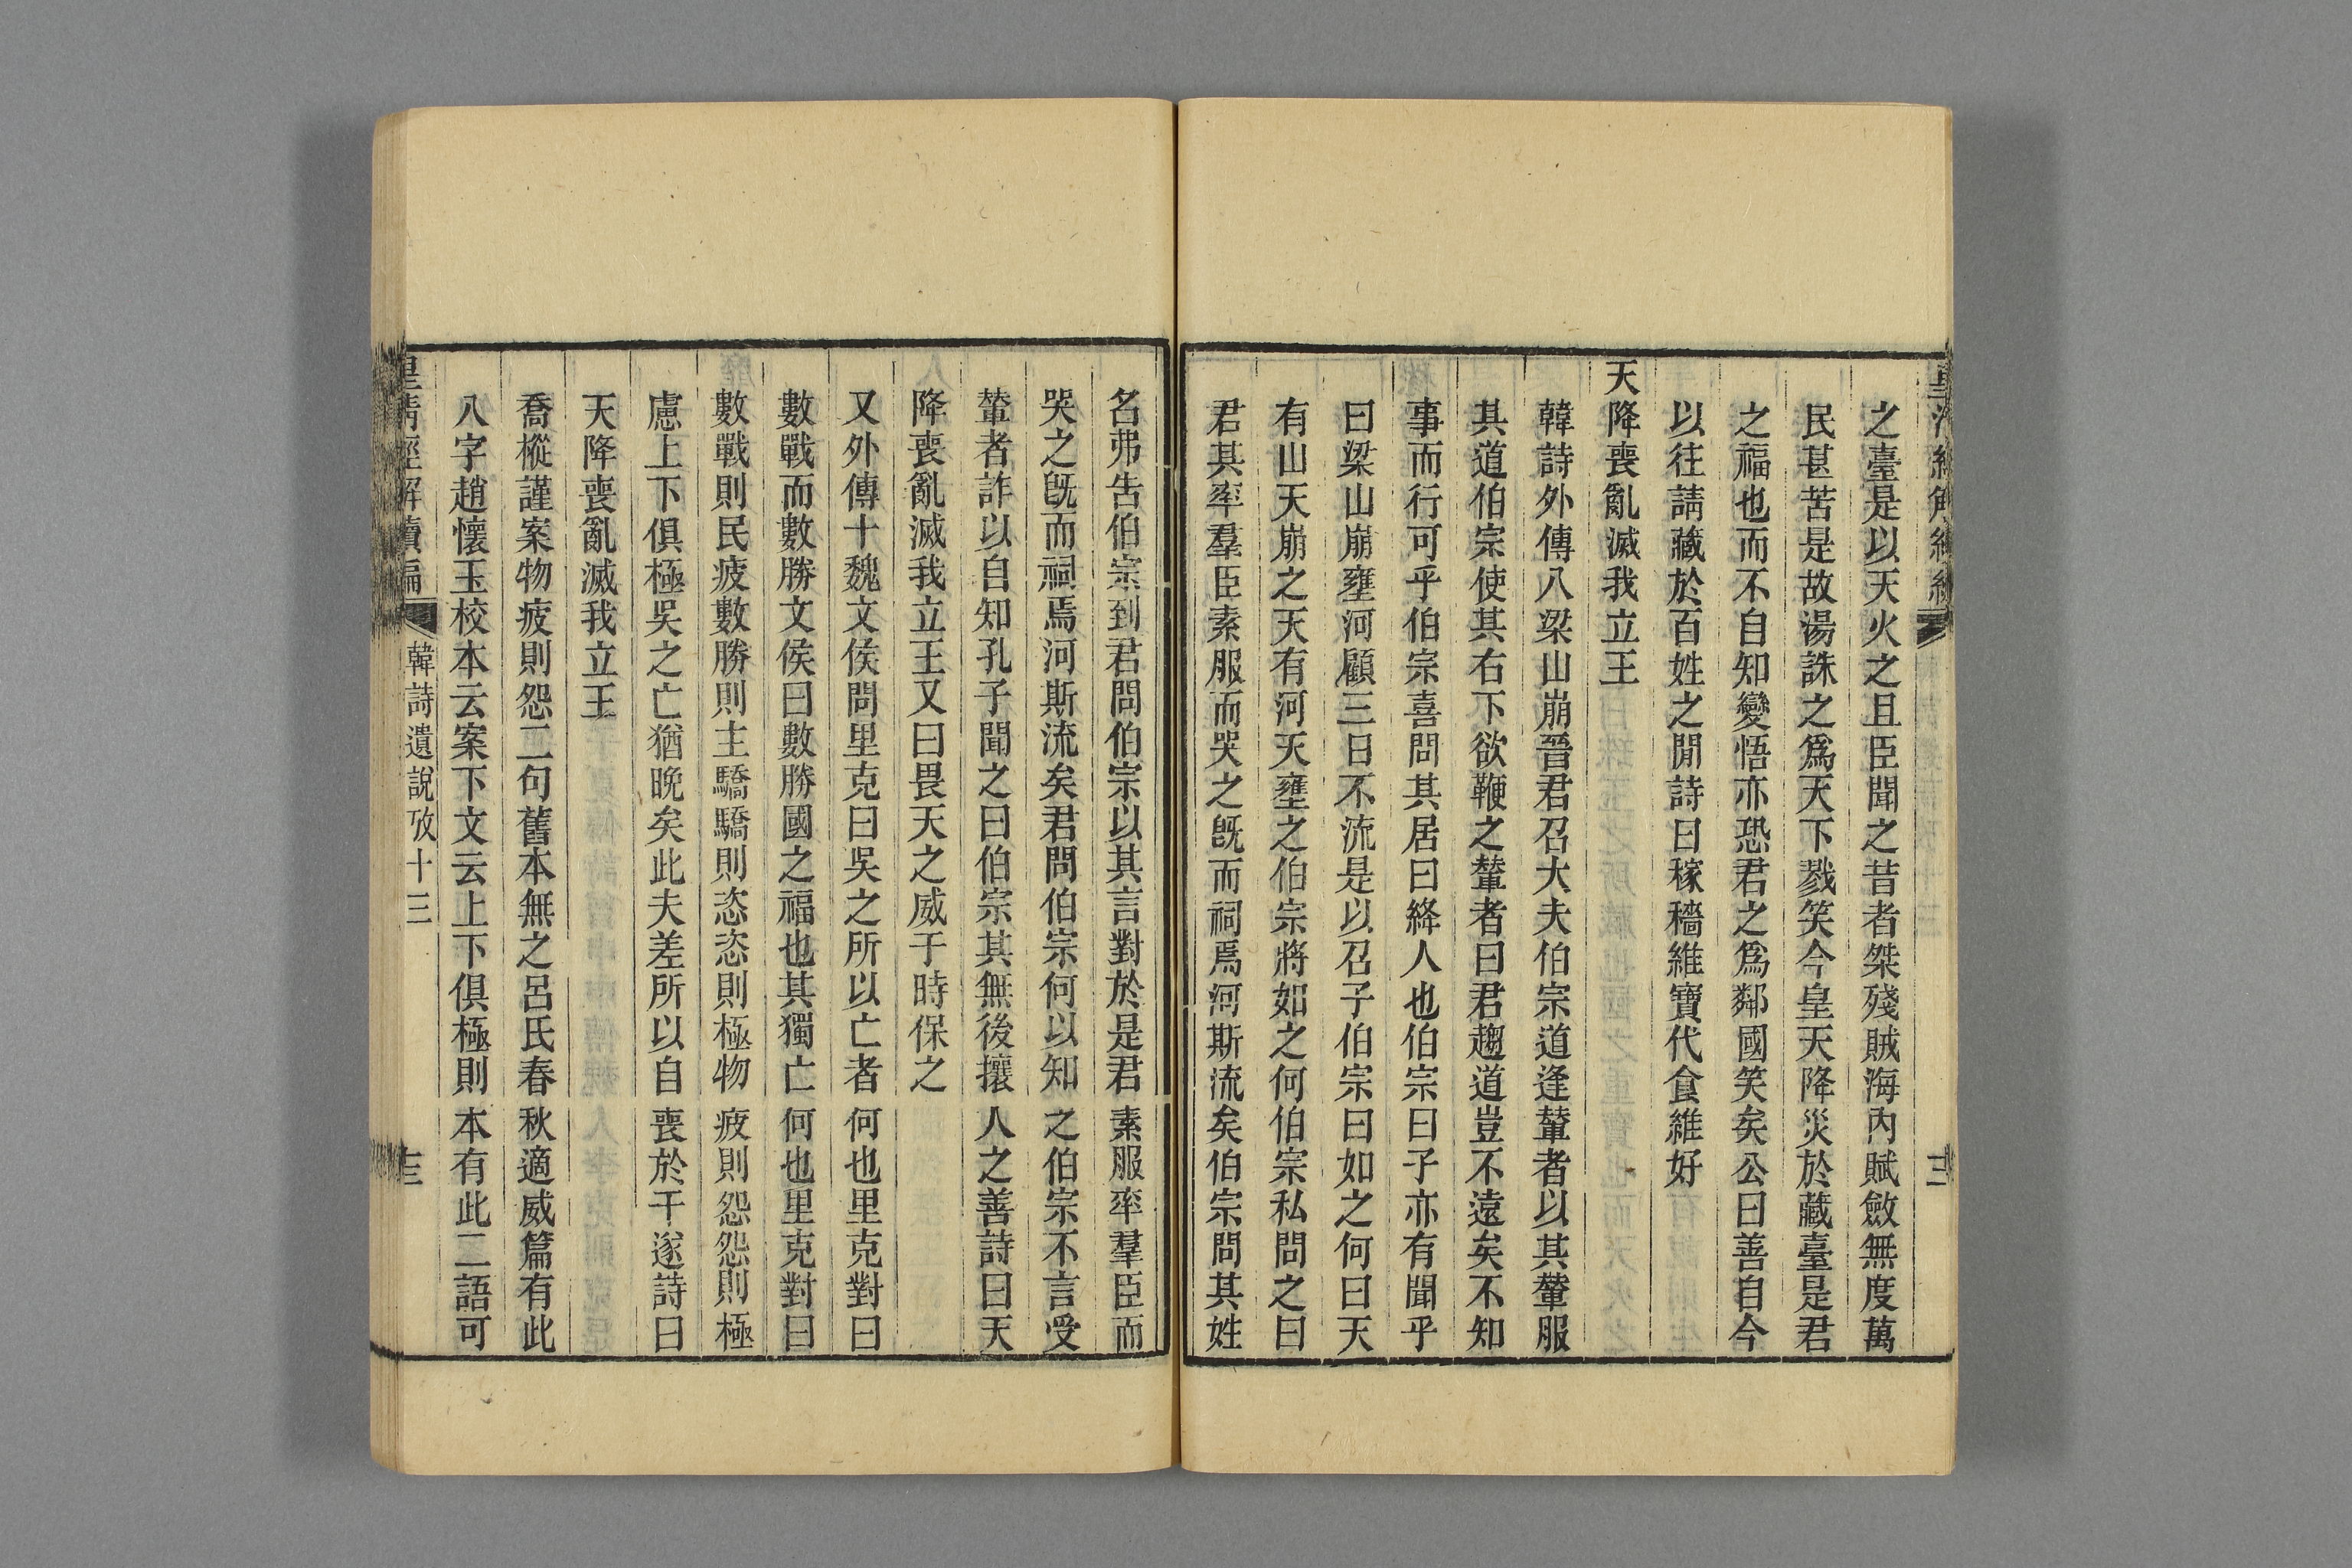 之臺是以天火之且臣聞之昔者桀殘賊海內賦斂無度萬
民甚苦是故湯誅之爲天下戮笑今皇天降災於藏臺是君
之福也而不自知變悟亦恐君之爲鄰國笑矣公曰善自今
以往請藏於百姓之閒詩曰稼穡維寶代食維好
天降喪亂滅我立王
韓詩外傳八梁山崩晉君召大夫伯宗道逢輦者以其輦服
其道伯宗使其右下欲鞭之輦者曰君趨道豈不遠矣不知
事而行可乎伯宗喜問其居曰絳人也伯宗曰子亦有聞乎
曰梁山崩壅河顧三日不流是以召子伯宗曰如之何曰天
有山天崩之天有河天壅之伯宗將如之何伯宗私問之曰
君其率羣臣素服而哭之旣而祠焉河斯流矣伯宗問其姓
名弗告伯宗到君問伯宗以其言對於是君素服率羣臣而
哭之旣而祠焉河斯流矣君問伯宗何以知之伯宗不言受
輦者詐以自知孔子聞之曰伯宗其無後攘人之善詩曰天
降喪亂滅我立王又曰畏天之威于時保之
又外傳十魏文侯問里克曰吳之所以亡者何也里克對曰
數戰而數勝文侯曰數勝國之福也其獨亡何也里克對曰
數戰則民疲數勝則主驕驕則恣恣則極物疲則怨怨則極
慮上下俱極吳之亡猶晚矣此夫差所以自喪於干遂詩曰
天降喪亂滅我立王
喬樅謹案物疲則怨二句舊本無之呂氏春秋適威篇有此
八字趙懷玉校本云案下文云上下俱極則本有此二語可
皇淸經解續編
韓詩遺說攷十三